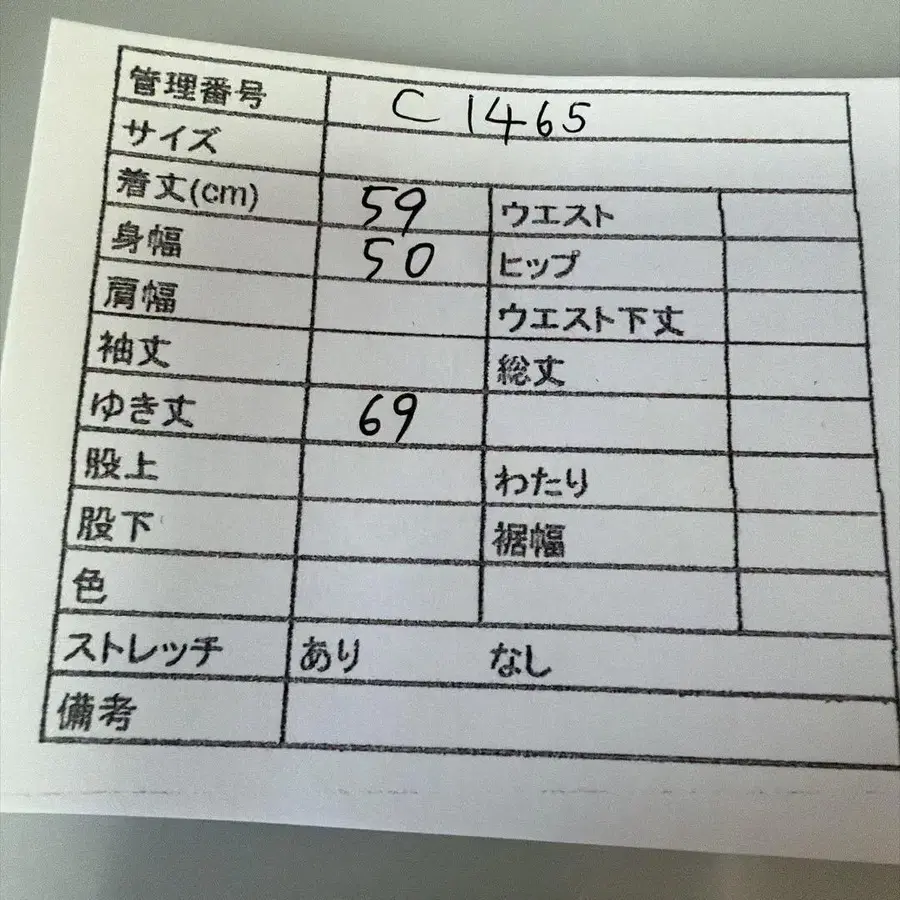 管理番号 C1465
サイズ
着丈(cm) 59 ウエスト
身幅 50 ヒップ
肩幅 ウエスト下丈
袖丈 総丈
ゆき丈 69
股上 わたり
股下 裾幅
色
ストレッチ あり なし
備考